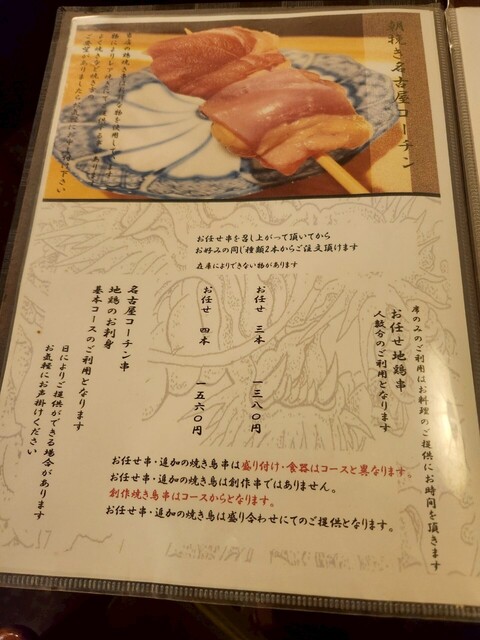 朝挽き名古屋コーチン
お任せ串を召し上がって頂いてから
お好みの同じ種類2本からご注文頂けます
在庫によりできない物があります
席のみのご利用はお料理のご提供にお時間を頂きます
お任せ地鶏串
人数分のご利用となります
お任せ 三本 一三八〇円
お任せ 四本 一五六〇円
名古屋コーチン串
地鶏のお刺身
基本コースのご利用となります
日によりご提供ができる場合があります
お気軽にお声掛けください
お任せ串・追加の焼き鳥串は盛り付け・食器はコースと異なります。
お任せ串・追加の焼き鳥は創作串ではありません。
創作焼き鳥串はコースからとなります。
お任せ串・追加の焼き鳥は盛り合わせにてのご提供となります。